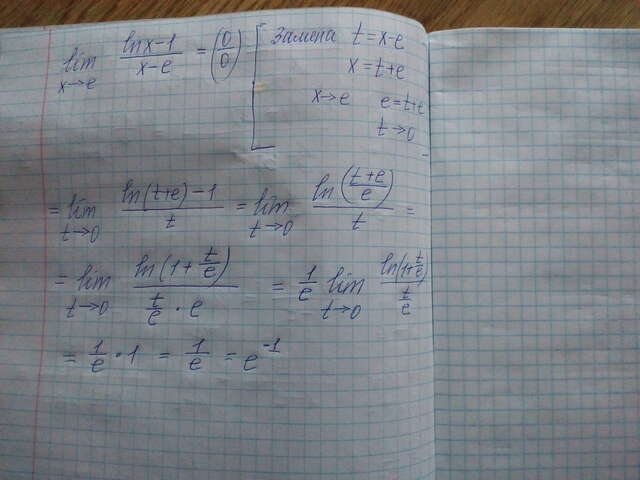 lim x→e (ln x − 1)/(x − e) = (0/0) [ Замена t = x − e
x = t + e
x→e e = t + e
t→0
= lim t→0 (ln(t+e) − 1)/t = lim t→0 ln((t+e)/e)/t =
= lim t→0 ln(1 + t/e)/(t/e · e) = 1/e lim t→0 ln(1 + t/e)/(t/e)
= 1/e · 1 = 1/e = e^-1